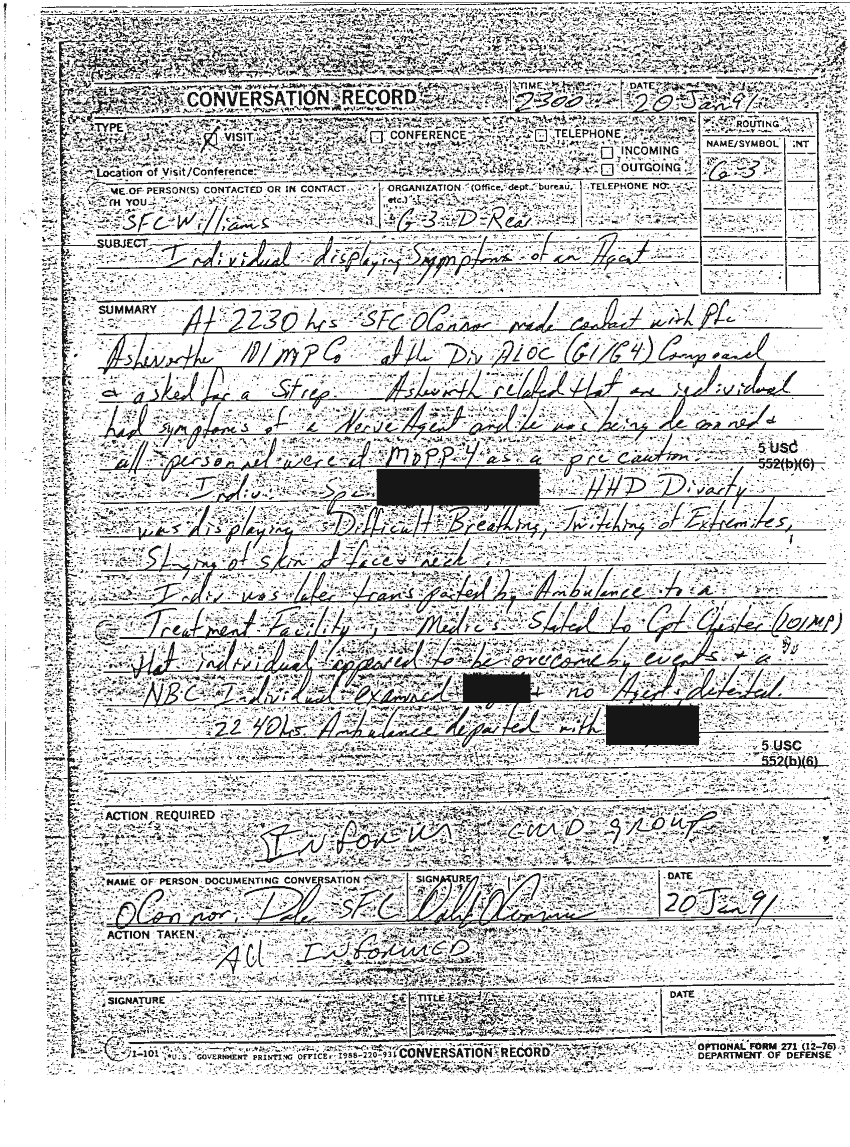 CONVERSATION RECORD
TIME
2300
DATE
20 Jan 91
TYPE
VISIT
CONFERENCE
TELEPHONE
INCOMING
OUTGOING
ROUTING
NAME/SYMBOL INT
G-3
Location of Visit/Conference:
ME OF PERSON(S) CONTACTED OR IN CONTACT
TH YOU
SFC Williams
ORGANIZATION (Office, dept., bureau,
etc.)
G-3 D-Rear
TELEPHONE NO.
SUBJECT
Individual displaying Symptoms of an Agent
SUMMARY
At 2230 hrs SFC OConnor made contact with Pfc
Ashworthe 101 MP Co at the Div ALOC (G1/G4) Compound
& asked for a Sitrep. Ashworth related that an individual
had symptoms of a Nerve Agent and he was being deconned &
all personnel were at MOPP 4 as a precaution.
5 USC
552(b)(6)
Indiv. Spc HHD Divarty
was displaying Difficult Breathing, Twitching of Extremites,
Stinging of skin at face & neck.
Indiv was later transported by Ambulance to a
Treatment Facility, Medics Stated to Cpt Chester (101 MP)
that individual appeared to be overcome by events & a
NBC Individual examined & no Agents detected.
2240 hrs. Ambulance departed with
5 USC
552(b)(6)
ACTION REQUIRED
INFORM CMD GROUP
NAME OF PERSON DOCUMENTING CONVERSATION
OConnor, Dale SFC
SIGNATURE
Dale OConnor
DATE
20 Jan 91
ACTION TAKEN
All INFORMED
SIGNATURE
TITLE
DATE
1-101
*U.S. GOVERNMENT PRINTING OFFICE: 1988-220-931
CONVERSATION RECORD
OPTIONAL FORM 271 (12-76)
DEPARTMENT OF DEFENSE